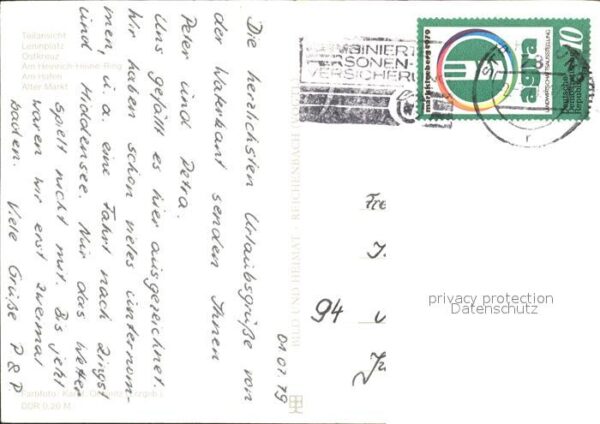 Teilansicht
Leninplatz
Ostkreuz
Am Heinrich-Heine-Ring
Am Hafen
Alter Markt
Die herzlichsten Urlaubsgrüße von
der Waterkant senden Ihnen
Peter und Petra.
Uns gefällt es hier ausgezeichnet.
Wir haben schon vieles unternom-
men, u. a. eine Fahrt nach Zingst
und Hiddensee. Nur das Wetter
spielt nicht mit. Bis jetzt
waren wir erst zweimal
baden. Viele Grüße P & P.
01.07.79
BILD UND HEIMAT · REICHENBACH
Farbfoto:
DDR 0,20 M
BINIERT
ERSONEN-
VERSICHERU
markkleeberg 1979
agra
LANDWIRTSCHAFTSAUSSTELLUNG
10
Deutsche
Demokratische
Republik
94
privacy protection
Datenschutz